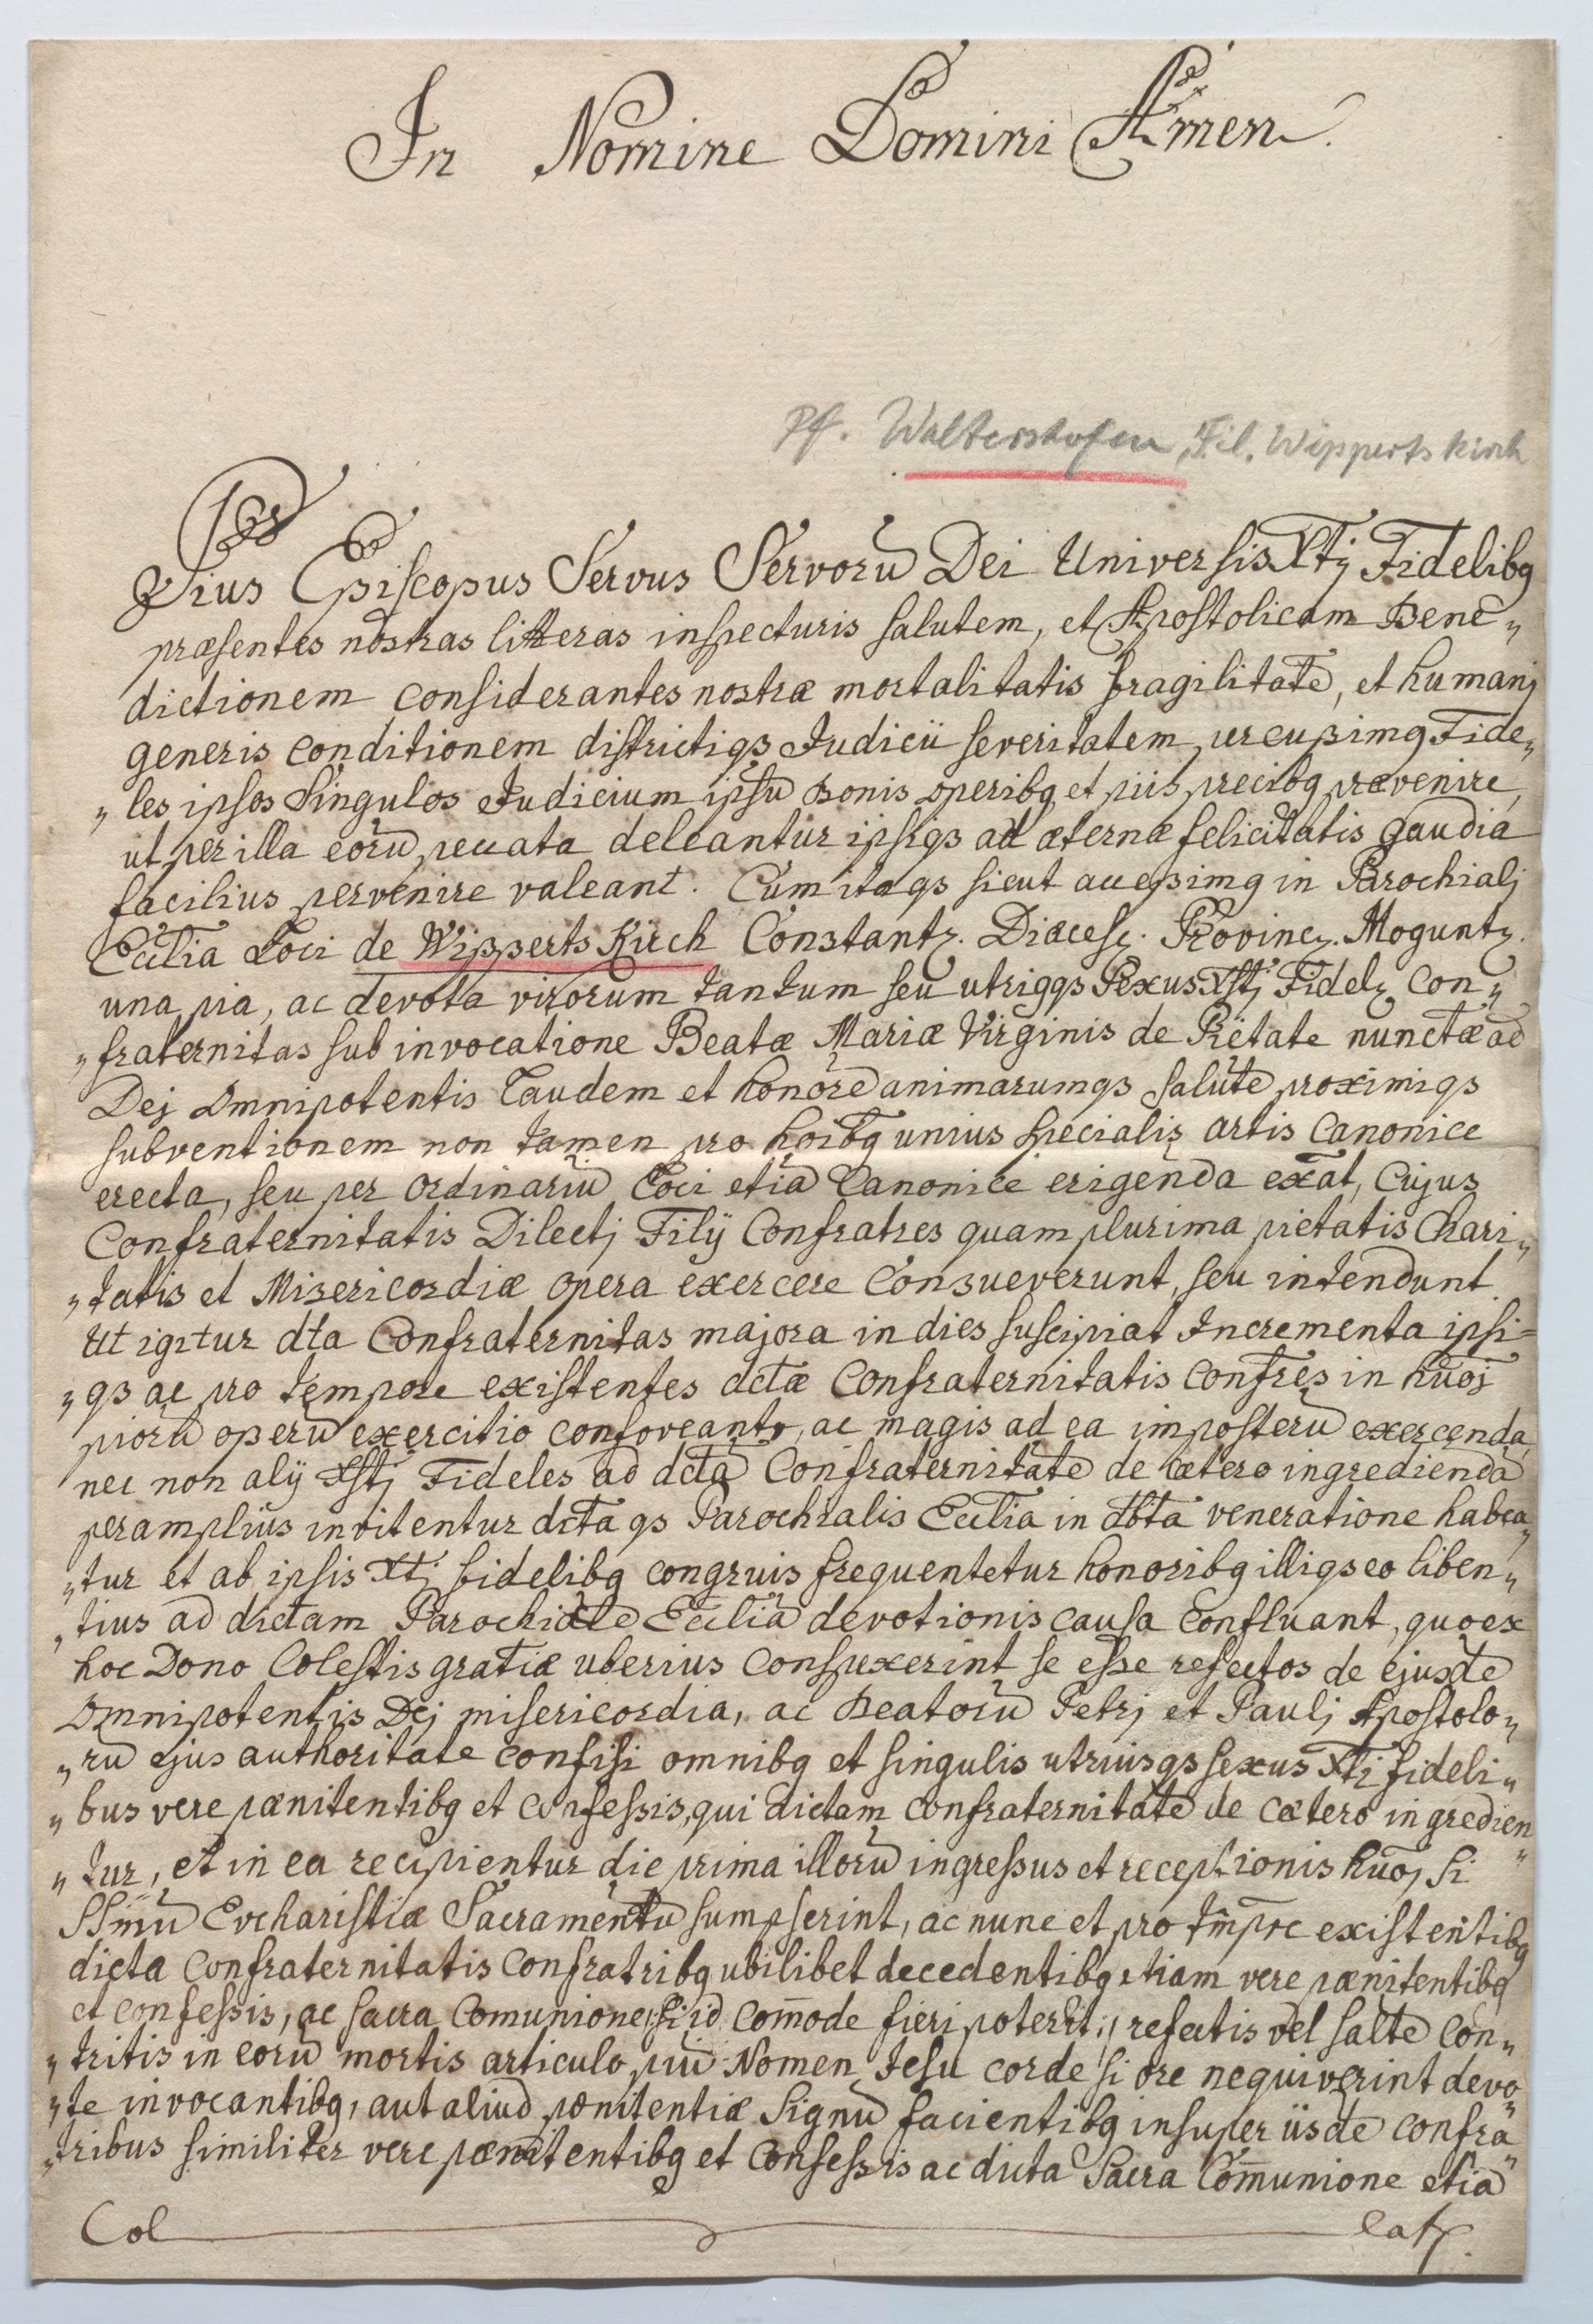 In Nomine Domini Amen.
Pf. Waltershofen, Fil. Wippertskirch
Pius Episcopus Servus Servorū Dei Universis Xtj Fidelibq
præsentes nostras litteras inspecturis salutem, et Apostolicam Bene„
dictionem considerantes nostræ mortalitatis fragilitatē, et humanj
generis conditionem districtiqs Judicii severitatem, percupimq Fide„
„les ipsos Singulos Judicium ipsū bonis operibq et piis precibq prævenire,
ut per illa eorū peccata deleantur ipsiqs ad æternæ felicitatis gaudia
facilius pervenire valeant. Cum itaqs sicut accepimq in Parochialj
Ecclia Loci de WippertsKirch Constantz. Diæcesz. Provincz. Moguntz.
una pia, ac devota virorum tantum seu utriqqs Sexus Xstj Fidelz Con„
„fraternitas sub invocatione Beatæ Mariæ Virginis de Pietate nunctæ ad
Dej Omnipotentis Laudem et honorē animarumqs salutē proximiqs
subventionem non tamen pro hoibq unius specialis artis Canonice
erecta, seu per Ordinariū Loci etiā Canonice erigenda exāt, Cujus
Confraternitatis Dilectj Filij Confratres quam plurima pietatis Chari„
„tatis et Misericordiæ opera exercere Consueverunt, seu intendunt
Ut igitur dta Confraternitas majora in dies suscipiat Incrementa ipsi=
„qs ac pro tempore existentes dctæ Confraternitatis Confres in hūoj
piorū operū exercitio confoveantr, ac magis ad ea imposterū exercenda,
nec non alij Xstj Fideles ad dctā Confraternitatē de cætero ingrediendā
peramplius invitentur dctaqs Parochialis Ecclia in dbta veneratione habea„
„tur et ab ipsis Xtj fidelibq congruis frequentetur honoribq illiqs eo liben„
„tius ad dictam Parochialē Eccliā devotionis causa Confluant, quo ex
hoc Dono Colestis gratiæ uberius Conspexerint se esse refectos de ejusdē
Omnipotentis Dej misericordia, ac Beatorū Petrj et Paulj Apostolo„
„rū ejus authoritate confisi omnibq et singulis utriusqs sexus Xti fideli„
„bus vere pænitentibq et confessis, qui dictam confraternitatē de cætero ingredien
„tur, et in ea recipientur die prima illorū ingressus et receptionis hūoj Si
SSmū Evcharistiæ Sacramentū sumpserint, ac nunc et pro tmpre existentibq
dicta Confraternitatis Confratribq ubilibet decedentibq etiam vere pænitentibq
et confessis, ac sacra Comunione, si id com̄ode fieri poterit, refectis vel saltē Con„
„tritis in eorū mortis articulo piū Nomen Jesu corde si ore nequiverint devo
„te invocantibq, aut aliud pænitentiæ Signū facientibq insuper iisdē confra
„tribus similiter vere pænitentibq et Confessis ac dicta Sacra Com̄unione etiā
Col latz.